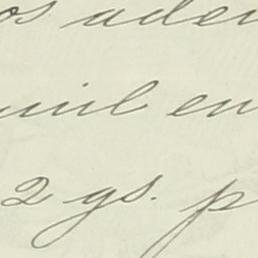 os aden
uil en
2 gs. p